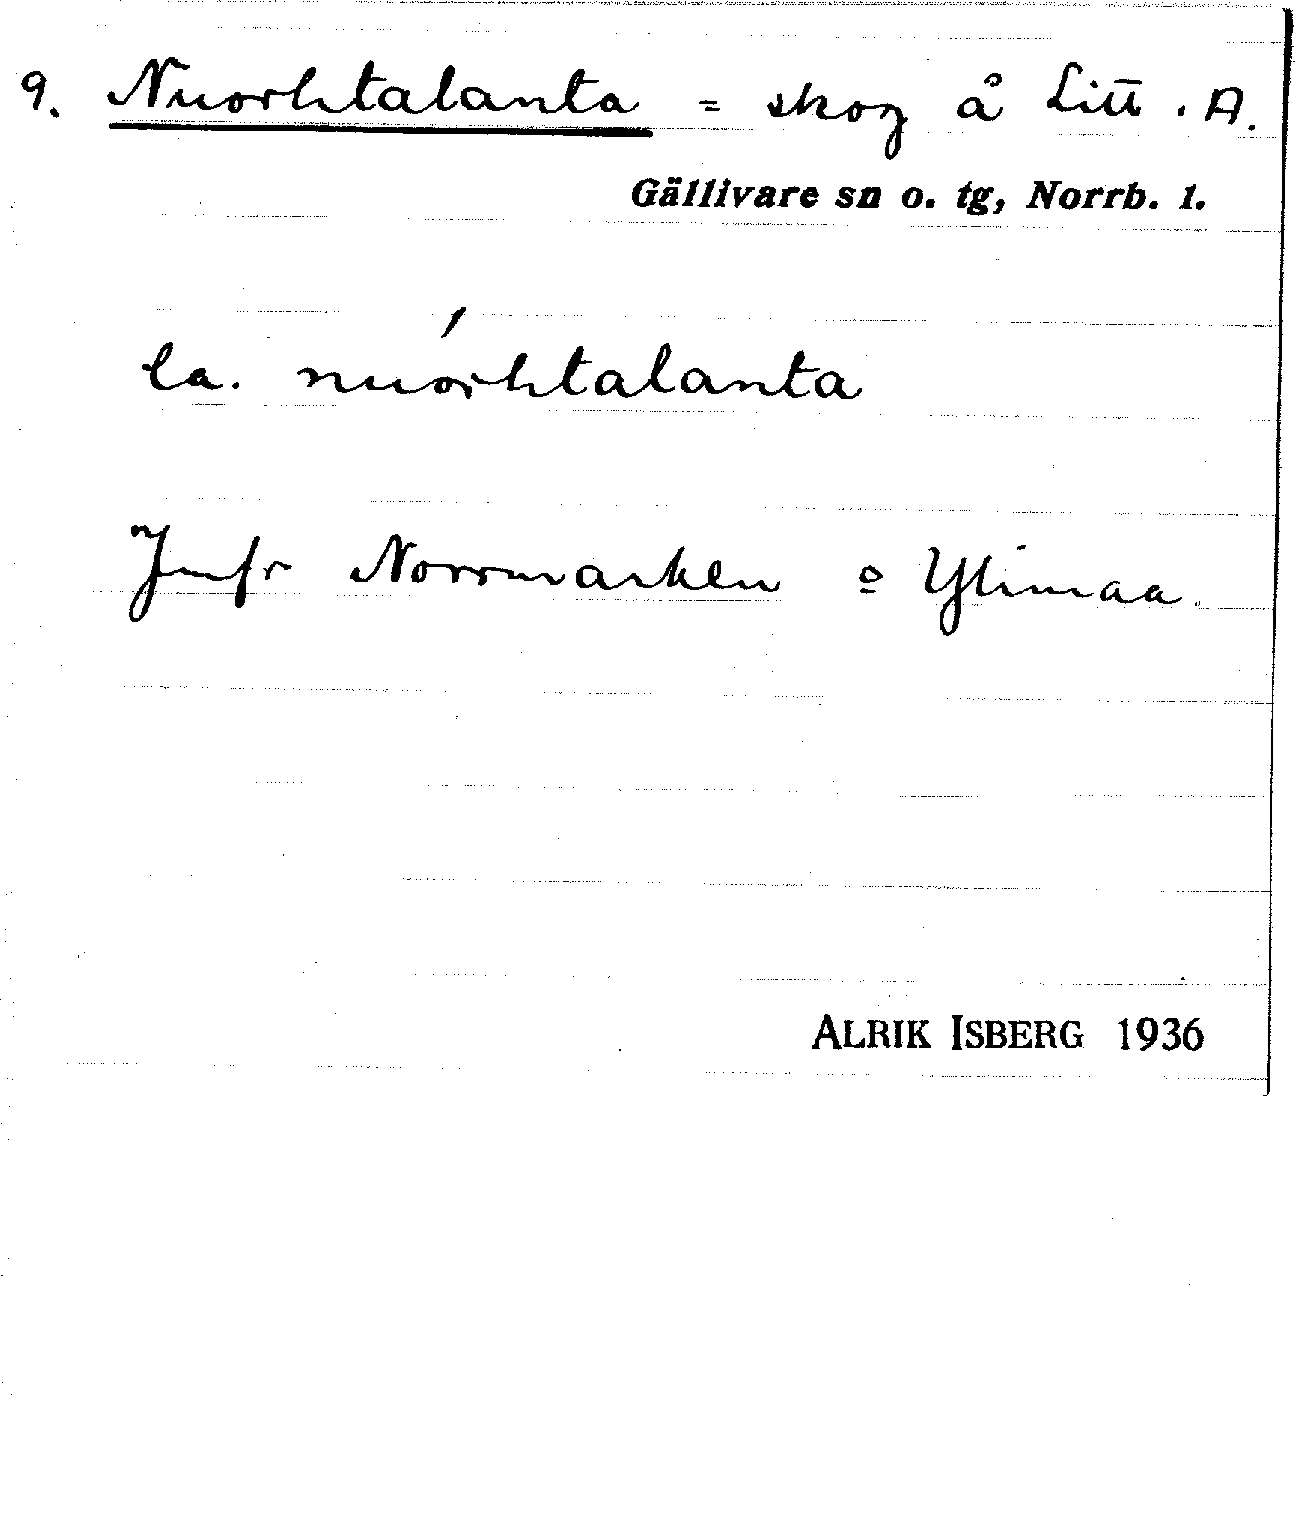 9. Nuorhtalanta = skog å Litt. A.
Gällivare sn o. tg, Norrb. l.
la. nuorhtalanta
Jmfr Norrmarken o Ylimaa.
ALRIK ISBERG 1936